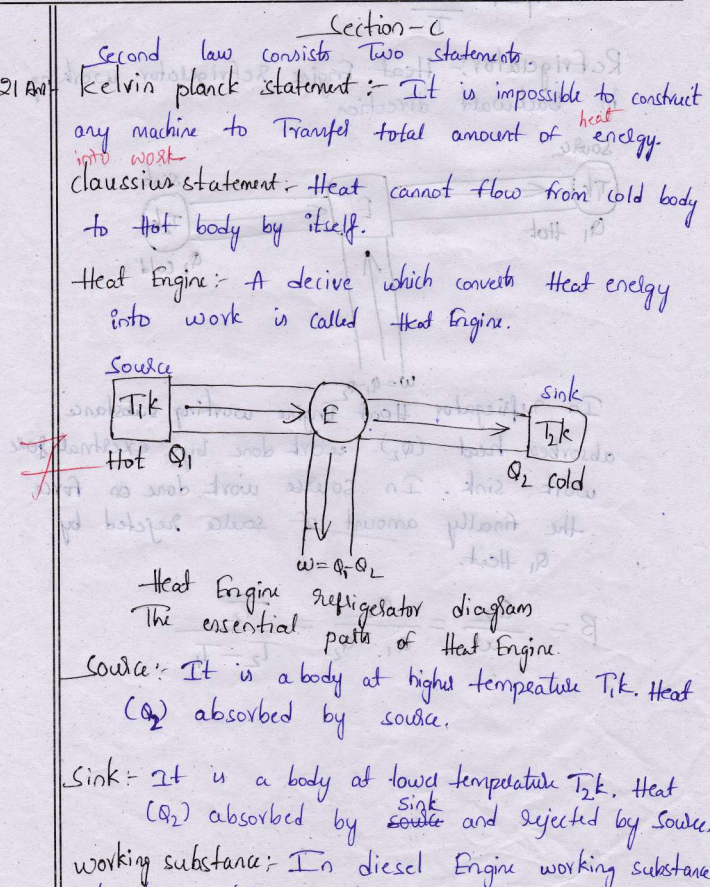 Section-C
Second law consists Two statements.
21 Ans Kelvin planck statement :- It is impossible to construct
any machine to Transfer total amount of heat energy.
into work
Claussius statement :- Heat cannot flow from cold body
to Hot body by itself.
Heat Engine :- A decive which converts Heat energy
into work is called Heat Engine.
Source
T1k
E
sink
T2k
Hot Q1
Q2 cold
w = Q1-Q2
Heat Engine refrigerator diagram
The essential paths of Heat Engine.
Source :- It is a body at higher tempeature T1k. Heat
(Q2) absorbed by source.
Sink :- It is a body at lower temperature T2k. Heat
(Q2) absorbed by source sink and rejected by source.
working substance :- In diesel Engine working substance